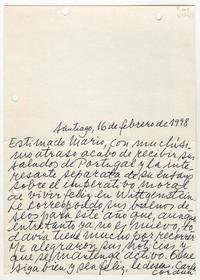 Santiago, 16 de febrero de 1998
Estimado Mario, con muchísi
mo atraso acabo de recibir sus
saludos de Portugal y la inte
resante separata de su ensayo
sobre el imperativo moral
de vivir feliz en Wittgenstein
Le correspondo sus buenos de
seos para este año que, aunque
entretanto ya no es nuevo, to
davía tiene mucho por recorrer.
Me alegraron sus noticias y
que se mantenga activo. Que
siga bien y sea feliz, le desea